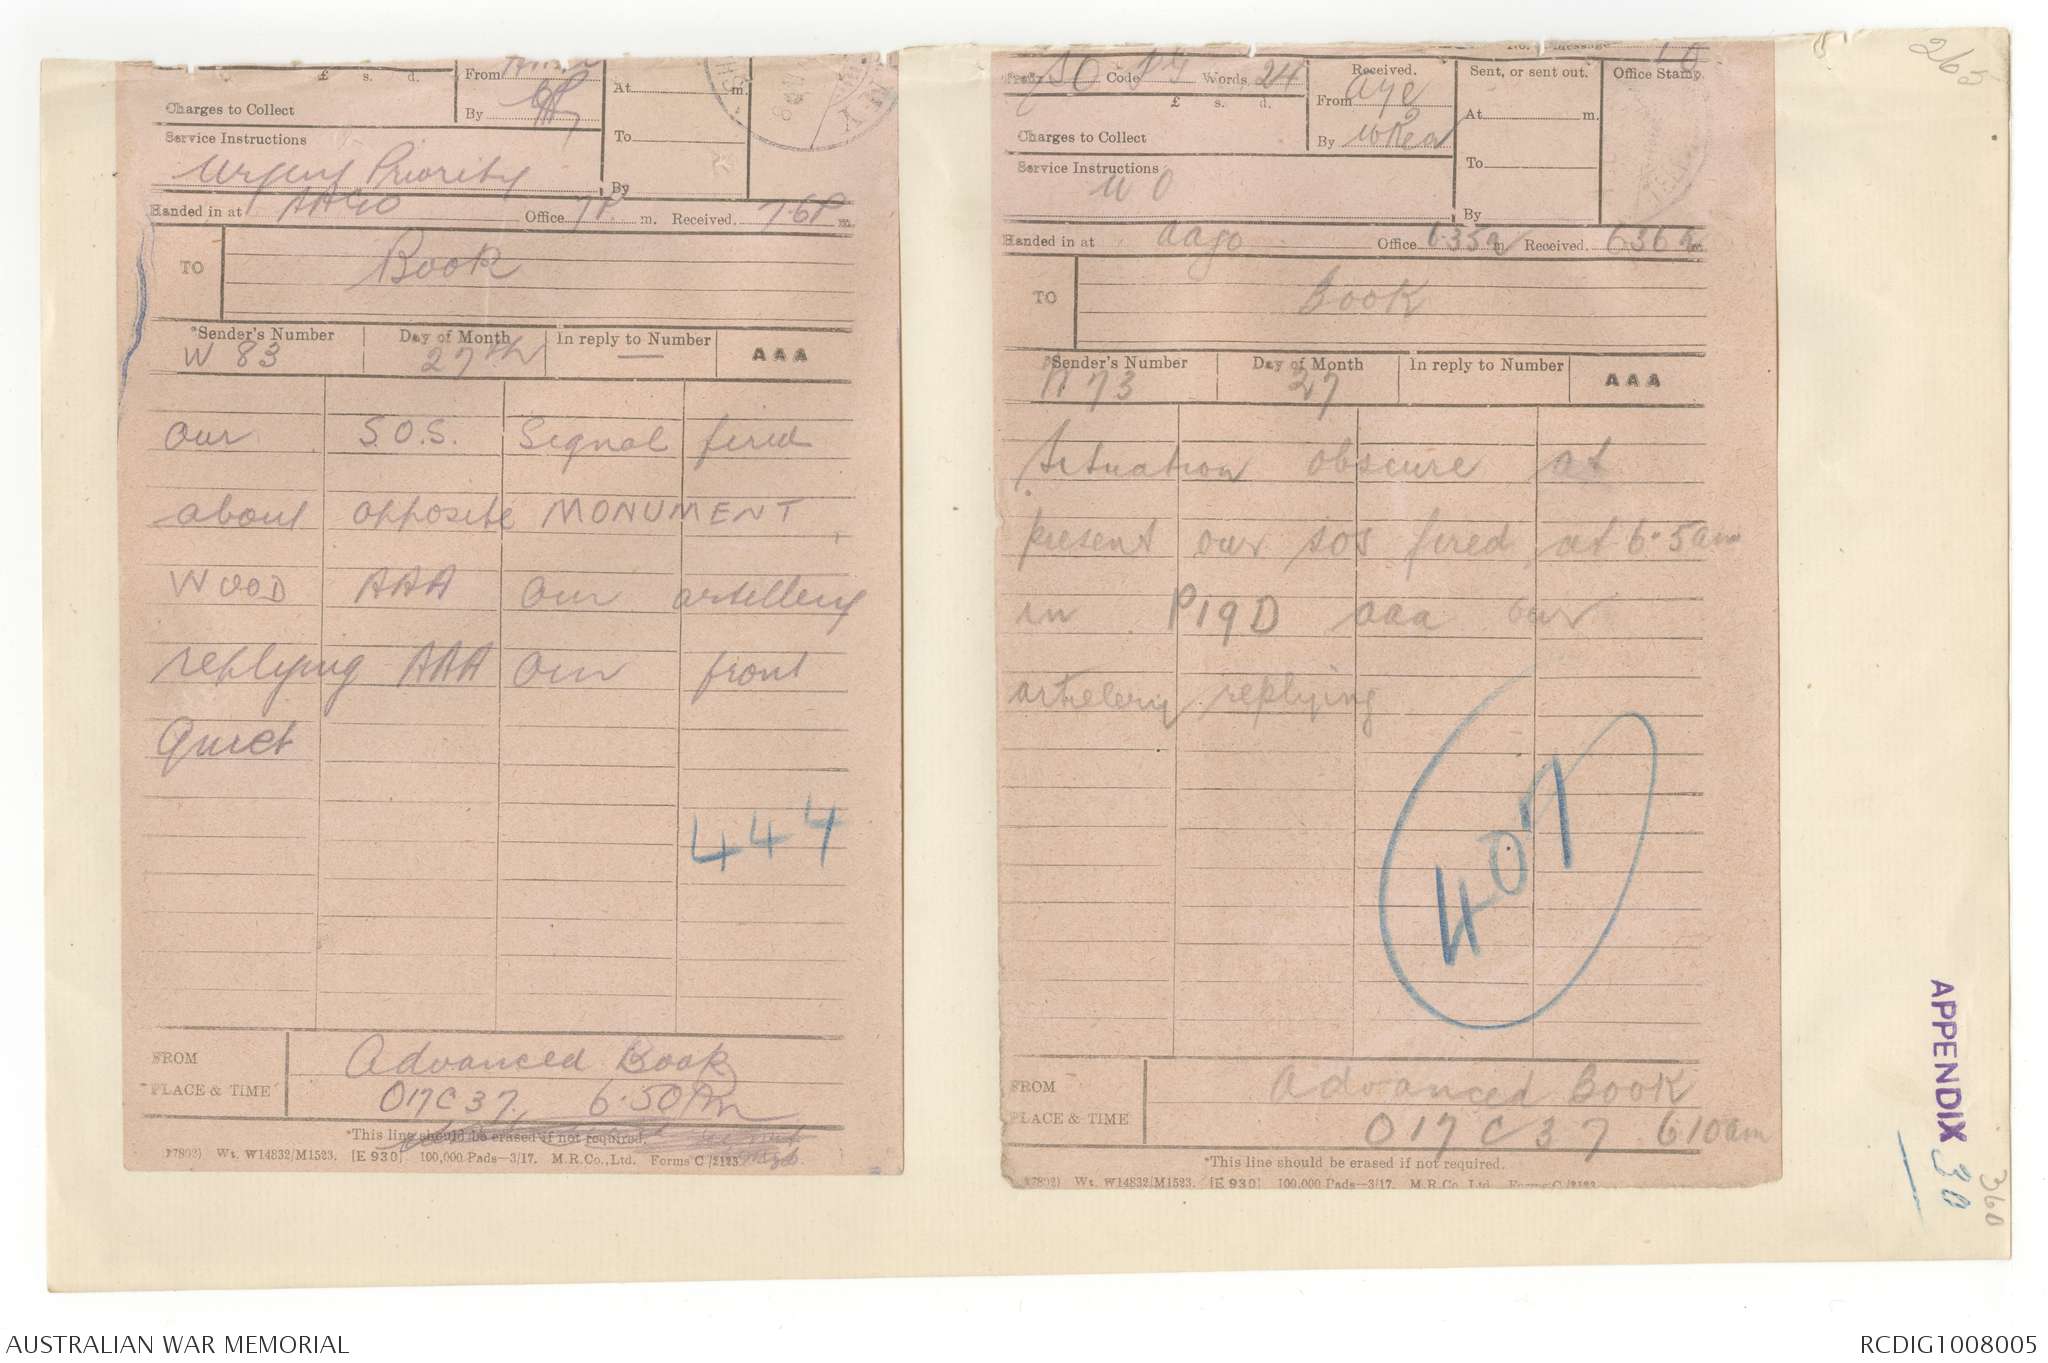 265
£ s. d.
From
Charges to Collect
By
At m.
To
By
Service Instructions
Urgent Priority
Handed in at AAGO Office 7P. m. Received. 7.6P m.
TO Book
*Sender's Number Day of Month In reply to Number AAA
W 83 27th —
Our S.O.S. Signal fired
about opposite MONUMENT
WOOD AAA Our artillery
replying AAA Our front
Quiet
444
FROM Advanced Book
PLACE & TIME O17C37. 6.50Pm
*This line should be erased if not required.
(7802) Wt. W14832/M1523. [E 930] 100,000 Pads—3/17. M.R.Co., Ltd. Forms C/2123.
No. of Message
Prefix SO Code Words, 24
Received. Sent, or sent out. Office Stamp.
£ s. d.
From aye
At m.
Charges to Collect
By
To
Service Instructions
By
Handed in at aago Office 6.35a m. Received. 6.36a m.
TO Book
*Sender's Number Day of Month In reply to Number AAA
73 27
Situation obscure at
present our SOS fired at 6.5am
in P19D aaa our
artillery replying
407
FROM Advanced Book
PLACE & TIME O17C37 610am
*This line should be erased if not required.
(7802) Wt. W14832/M1523. [E 930] 100,000 Pads—3/17. M.R.Co., Ltd. Forms C/2123.
APPENDIX 30
360
AUSTRALIAN WAR MEMORIAL
RCDIG1008005